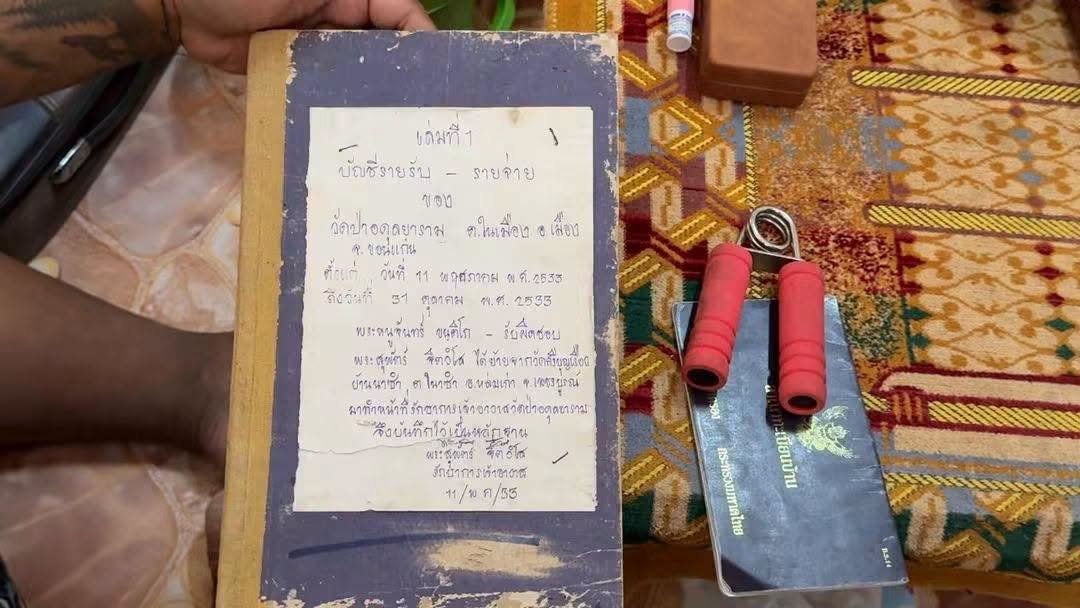 เล่มที่ 1
บัญชีรายรับ - รายจ่าย
ของ
วัดป่าอดุลยาราม ต.ในเมือง อ.เมือง
จ.ขอนแก่น
ตั้งแต่ วันที่ 11 พฤศภาคม พ.ศ.2533
ถึงวันที่ 31 ตุลาคม พ.ศ. 2533
พระหนูจันทร์ ขนฺติโก - รับผิดชอบ
พระสุพัตร์ จิตฺตวํโส ได้ย้ายจากวัดศรีบุญเรือง
บ้านนาซำ ต.นาซำ อ.หล่มเก่า จ.เพชรบูรณ์
มาทำหน้าที่รักษาการเจ้าอาวาสวัดป่าอดุลยาราม
จึงบันทึกไว้เป็นหลักฐาน
พระสุพัตร์
รักษาการเจ้าอาวาส
11/พ.ค/33
ทะเบียนบ้าน
กระทรวงมหาดไทย
ท.ร.14